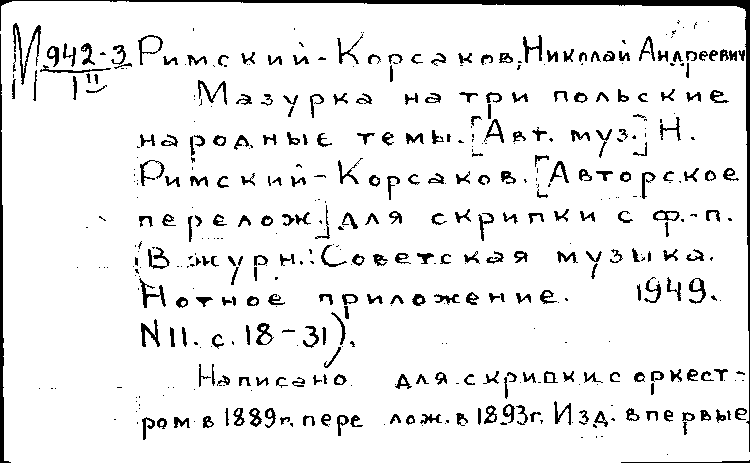 М 942-3 Римский-Корсаков, Николай Андреевич
1II
Мазурка на три польские
народные темы. [Авт. муз.] Н.
Римский-Корсаков. [Авторское
перелож.] для скрипки с ф.-п.
(В журн.: Советская музыка.
Нотное приложение. 1949.
N11. с. 18-31).
Написано для скрипки с оркест-
ром в 1889г. пере лож. в 1893г. Изд. впервые